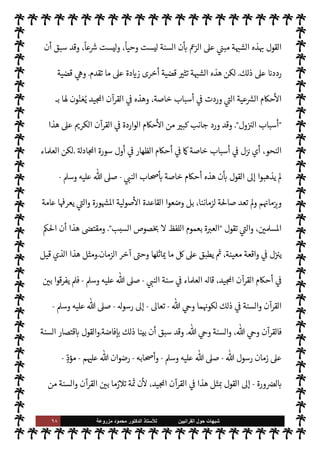 القول بهذه الشبهة مبني على الزعم بأن السنة ليست وحياً، وليست شرعاً، وقد سبق أن
رددنا على ذلك. لكن هذه الشبهة تثير قضية أخرى زيادة على ما تقدم. وهي قضية
الأحكام الشرعية التي وردت في أسباب خاصة. وهذه في القرآن المجيد يُعَنْوَن لها بـ
"أسباب النزول". وقد ورد جانب كبير من الأحكام الواردة في القرآن الكريم على هذا
النحو، أي نزل في أسباب خاصة كما في أحكام الظهار في أول سورة المجادلة .لكن العلماء
لم يذهبوا إلى القول بأن هذه أحكام خاصة بأصحاب النبي - صلى الله عليه وسلم -
وبزمانهم ولم تعد صالحة لزماننا، بل وضعوا القاعدة الأصولية المشهورة والتي يعرفها عامة
المسلمين، والتي تقول "العبرة بعموم اللفظ لا بخصوص السبب". ومقتضى هذا أن الحكم
ينزل في واقعة معينة، ثم يطبق على كل ما يماثلها وحتى آخر الزمان.ومثل هذا الذي قيل
في أحكام القرآن المجيد، قاله العلماء في سنة النبي - صلى الله عليه وسلم - فلم يفرقوا بين
القرآن والسنة في ذلك لكونهما وحي الله - تعالى - إلى رسوله - صلى الله عليه وسلم -
فالقرآن وحي الله، والسنة وحي الله. وقد سبق أن بينا ذلك بإفاضة.والقول باقتصار السنة
على زمان رسول الله - صلى الله عليه وسلم - وأصحابه - رضوان الله عليهم - مؤدٍ
بالضرورة - إلى القول بمثل هذا في القرآن المجيد، لأن ثمة تلازما بين القرآن والسنة من
شبهات حول القرآنيين للأستاذ الدكتور محمود مزروعة ٦٨